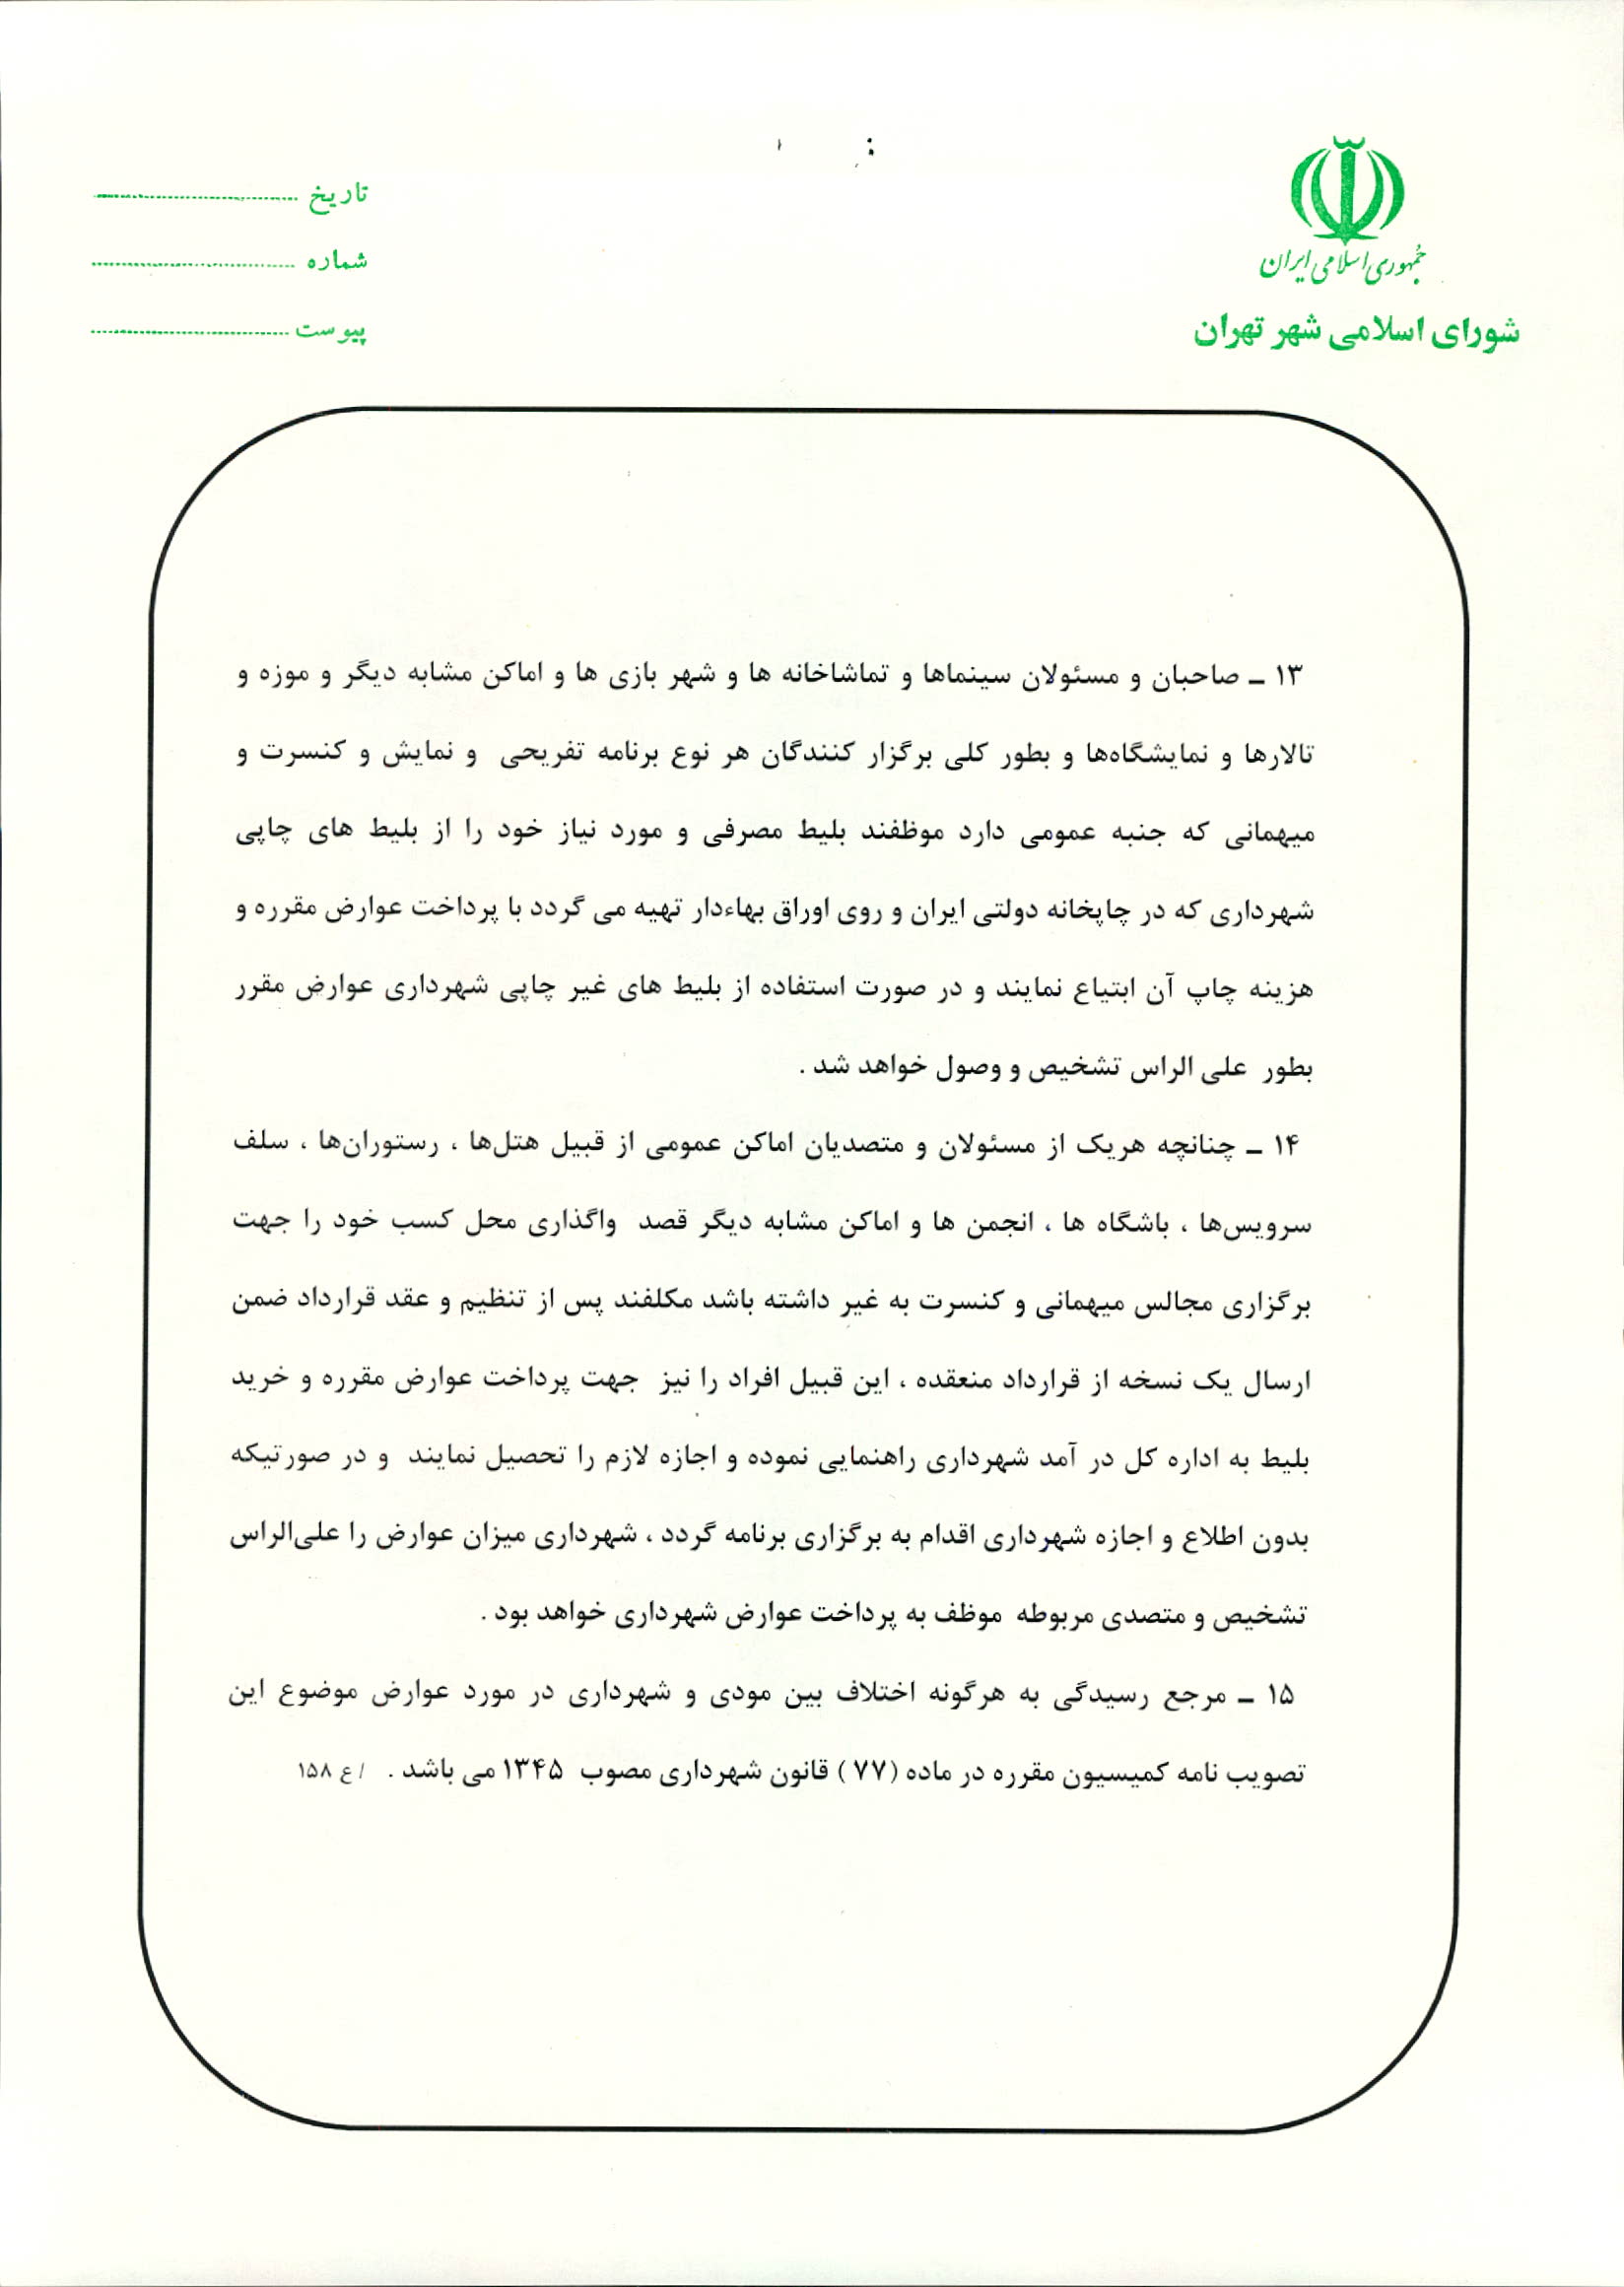 جمهوری اسلامی ایران
شورای اسلامی شهر تهران
تاریخ
شماره
پیوست
۱۳ ـ صاحبان و مسئولان سینماها و تماشاخانه ها و شهر بازی ها و اماکن مشابه دیگر و موزه و
تالارها و نمایشگاه‌ها و بطور کلی برگزار کنندگان هر نوع برنامه تفریحی و نمایش و کنسرت و
میهمانی که جنبه عمومی دارد موظفند بلیط مصرفی و مورد نیاز خود را از بلیط های چاپی
شهرداری که در چاپخانه دولتی ایران و روی اوراق بهاءدار تهیه می گردد با پرداخت عوارض مقرره و
هزینه چاپ آن ابتیاع نمایند و در صورت استفاده از بلیط های غیر چاپی شهرداری عوارض مقرر
بطور علی الراس تشخیص و وصول خواهد شد .
۱۴ ـ چنانچه هریک از مسئولان و متصدیان اماکن عمومی از قبیل هتل‌ها ، رستوران‌ها ، سلف
سرویس‌ها ، باشگاه ها ، انجمن ها و اماکن مشابه دیگر قصد واگذاری محل کسب خود را جهت
برگزاری مجالس میهمانی و کنسرت به غیر داشته باشد مکلفند پس از تنظیم و عقد قرارداد ضمن
ارسال یک نسخه از قرارداد منعقده ، این قبیل افراد را نیز جهت پرداخت عوارض مقرره و خرید
بلیط به اداره کل در آمد شهرداری راهنمایی نموده و اجازه لازم را تحصیل نمایند و در صورتیکه
بدون اطلاع و اجازه شهرداری اقدام به برگزاری برنامه گردد ، شهرداری میزان عوارض را علی‌الراس
تشخیص و متصدی مربوطه موظف به پرداخت عوارض شهرداری خواهد بود .
۱۵ ـ مرجع رسیدگی به هرگونه اختلاف بین مودی و شهرداری در مورد عوارض موضوع این
تصویب نامه کمیسیون مقرره در ماده (۷۷ ) قانون شهرداری مصوب ۱۳۴۵ می باشد . /ع ۱۵۸